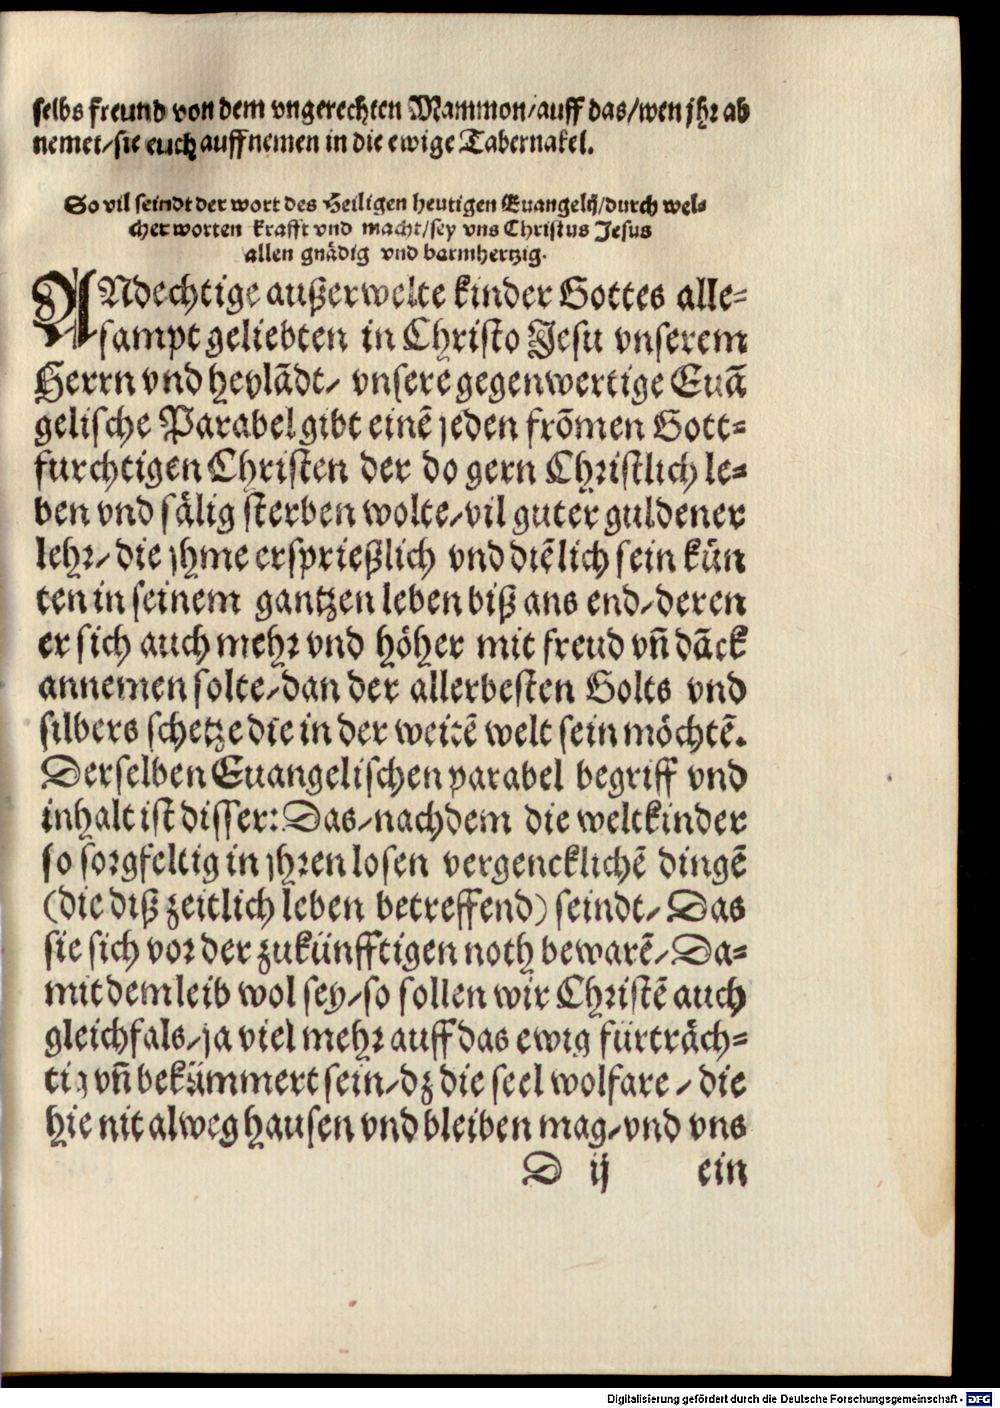 selbs freund von dem vngerechten Mammon/auff das/wen jhr ab
nemet/sie euch auffnemen in die ewige Tabernakel.
So vil seindt der wort des Heiligen heutigen Euangelij/durch wel=
cher worten krafft vnd macht/sey vns Christus Jesus
allen gnädig vnd barmhertzig.
ANdechtige außerwelte kinder Gottes alle=
sampt geliebten in Christo Jesu vnserem
Herrn vnd heylãdt/ vnsere gegenwertige Euã
gelische Parabel gibt einẽ jeden frõmen Gott=
furchtigen Christen der do gern Christlich le=
ben vnd sälig sterben wolte/vil guter guldener
lehr/die jhme ersprießlich vnd diẽlich sein kün
ten in seinem gantzen leben biß ans end/deren
er sich auch mehr vnd höher mit freud vñ dãck
annemen solte/dan der allerbesten Golts vnd
silbers schetze die in der weitẽ welt sein möchtẽ.
Derselben Euangelischen parabel begriff vnd
inhalt ist disser: Das/nachdem die weltkinder
so sorgfeltig in jhren losen vergencklichẽ dingẽ
(die diß zeitlich leben betreffend) seindt/Das
sie sich vor der zukünfftigen noth bewarẽ/Da=
mit dem leib wol sey/so sollen wir Christẽ auch
gleichfals/ja viel mehr auff das ewig fürträch=
tig vñ bekümmert sein/dz die seel wolfare/die
hie nit alweg hausen vnd bleiben mag/vnd vns
D ij ein
Digitalisierung gefördert durch die Deutsche Forschungsgemeinschaft - DFG